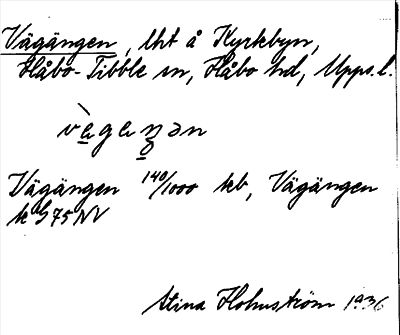 Vägängen, lht å Kyrkbyn,
Håbo-Tibble sn, Håbo hd, Upps. l.
Vägängen 140/1000 kb, Vägängen
k G 75 NV
Stina Holmström 1936